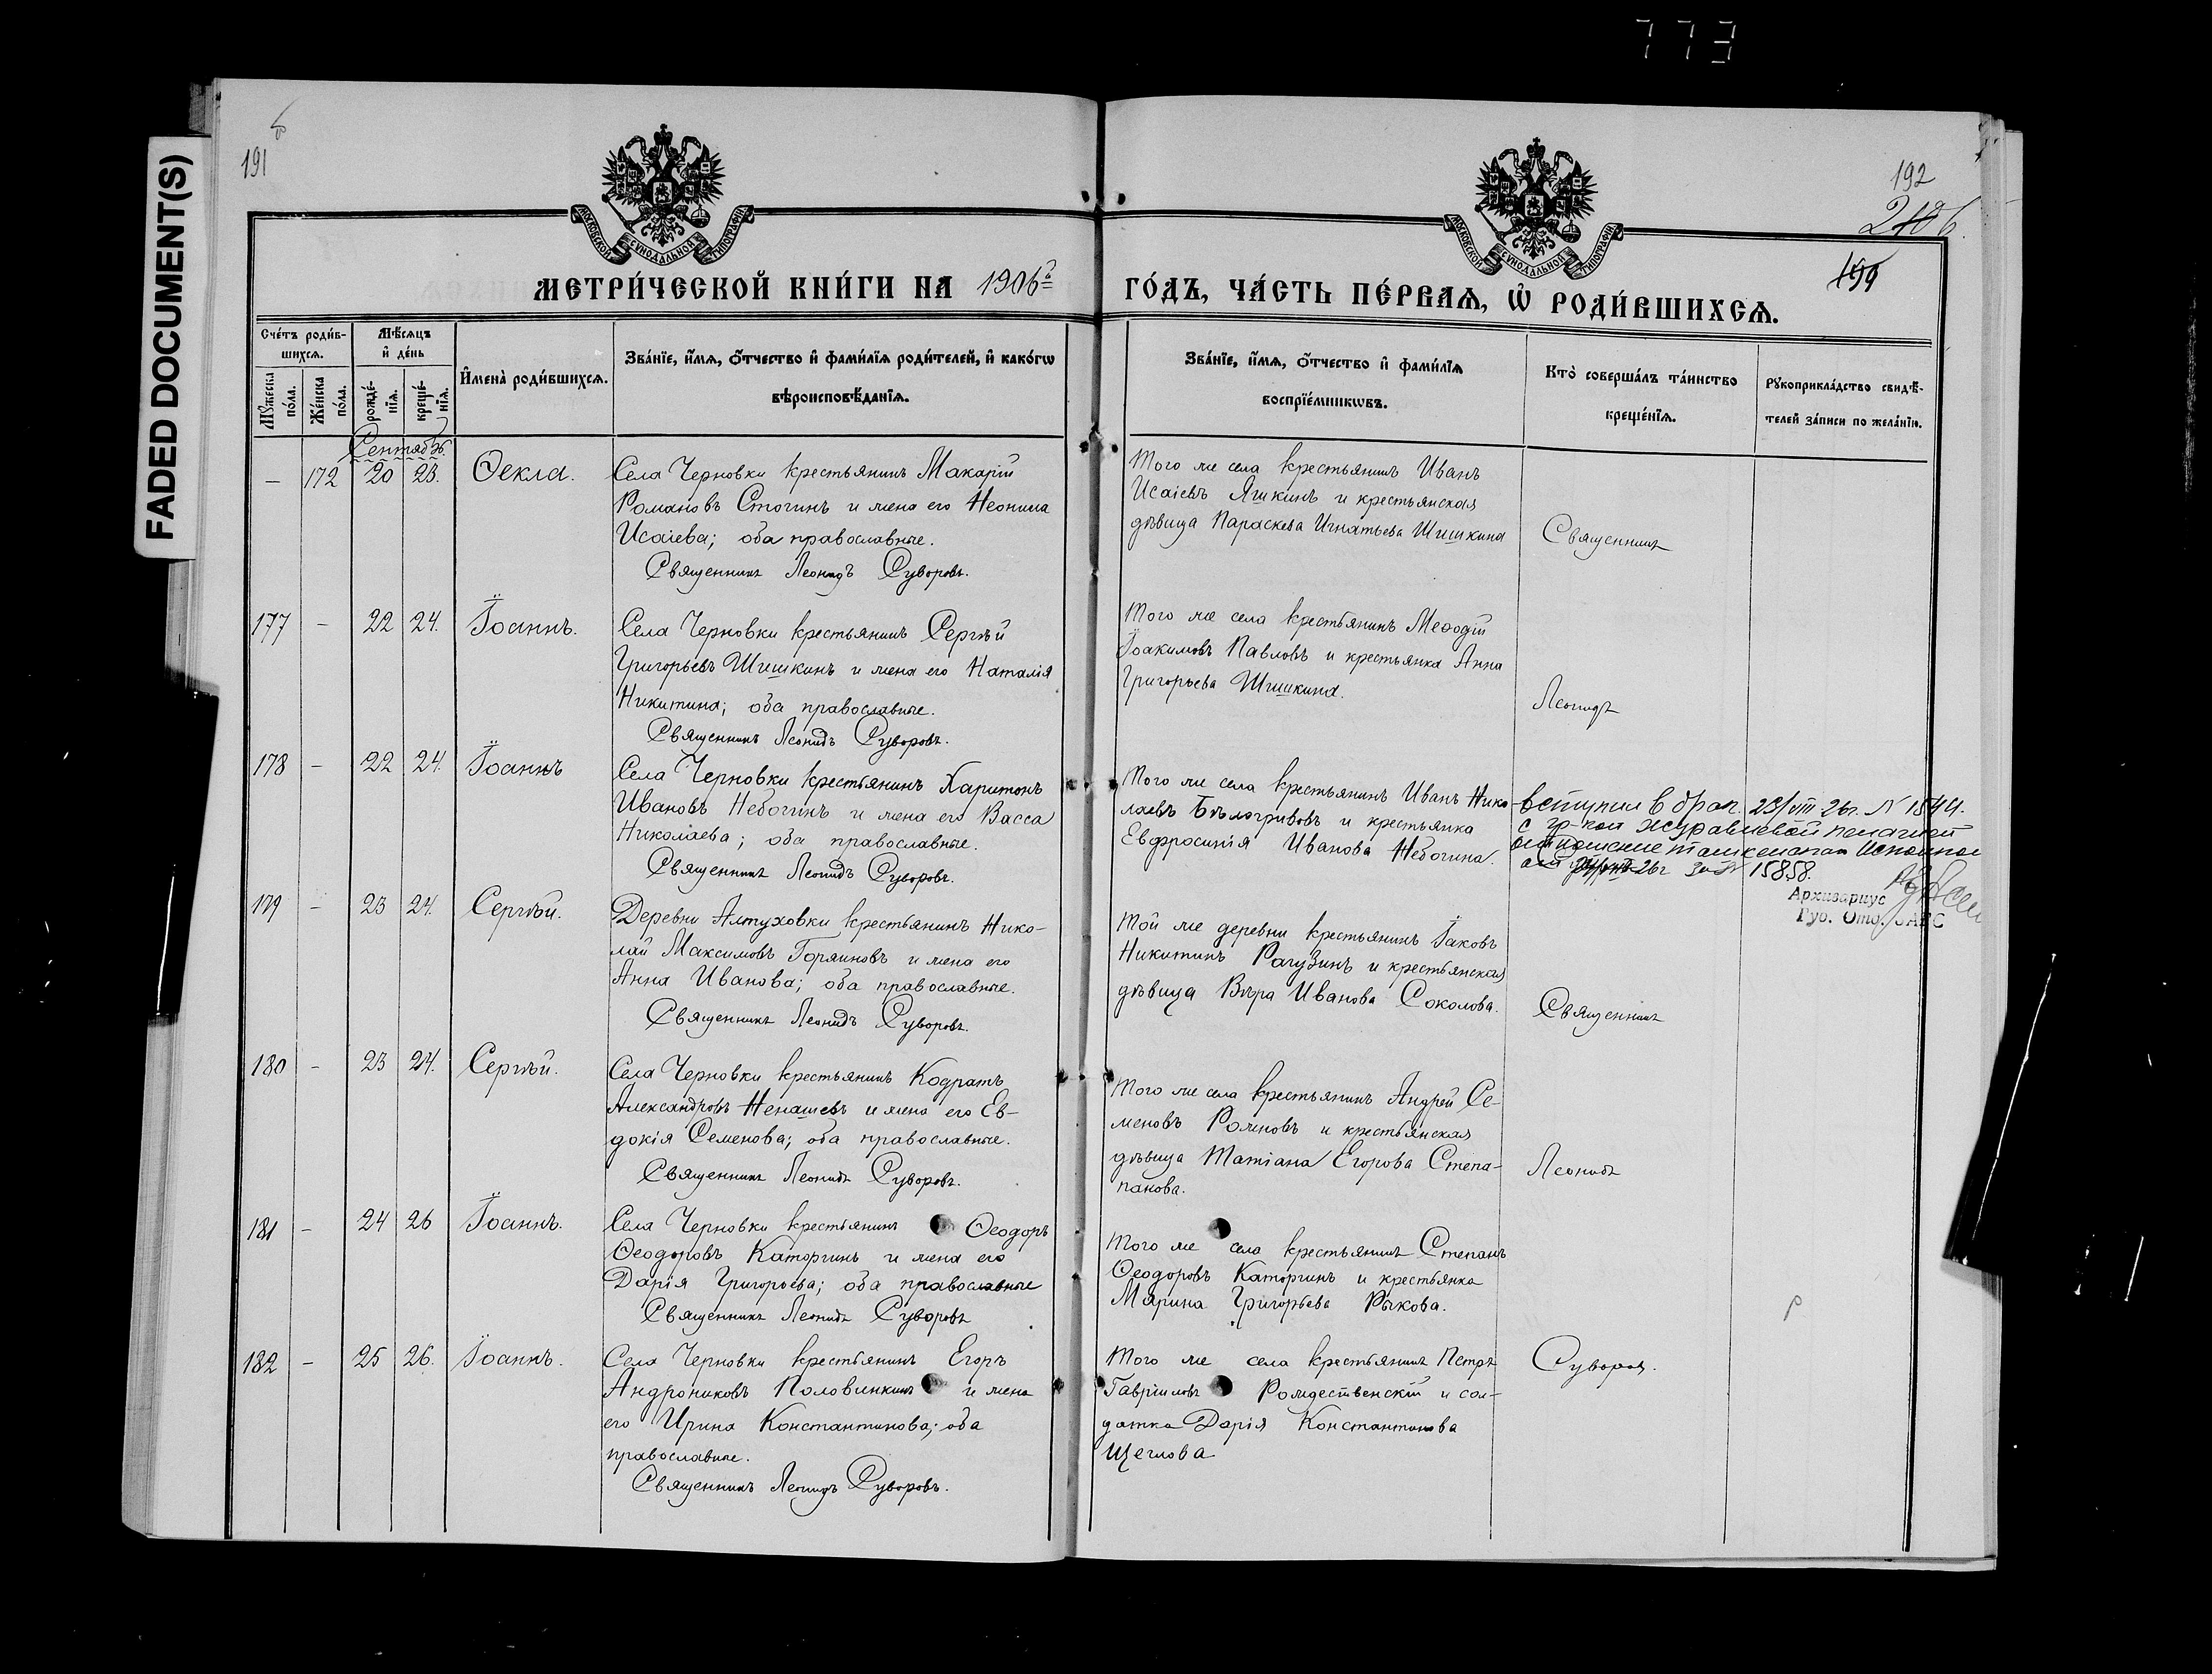 773
FADED DOCUMENT(S)
191
192
МОСКОВСКОЙ СѴНОДАЛЬНОЙ ТИПОГРАФІИ
МОСКОВСКОЙ СѴНОДАЛЬНОЙ ТИПОГРАФІИ
МЕТРИ́ЧЕСКОЙ КНИ́ГИ НА 1906 г.
ГО́ДЪ, ЧА́СТЬ ПЕ́РВАѦ, Ѡ҆ РОДИ́ВШИХСѦ.
Сче́тъ роди́в-
шихсѧ.
Мꙋ́жеска по́ла.
Же́нска по́ла.
Мѣ́сѧцъ и҆ де́нь
рожде́-
нїѧ.
креще́-
нїѧ.
И҆мена̀ роди́вшихсѧ.
Зва́нїе, и҆́мѧ, ѻ҆́тчество и҆ фами́лїѧ роди́телей, и҆ како́гѡ
вѣроисповѣ́данїѧ.
Зва́нїе, и҆́мѧ, ѻ҆́тчество и҆ фами́лїѧ
воспрїе́мникѡвъ.
Кто̀ соверша́лъ та́инство
креще́нїѧ.
Рꙋкоприкла́дство свидѣ́-
телей за́писи по жела́нїю.
Сентябрь.
— 172 20 23. Ѳекла.
Села Черновки крестьянинъ Макарій
Романовъ Стогинъ и жена его Неонила
Исаіева; оба православные.
Священникъ Леонидъ Суворовъ.
Того же села крестьянинъ Иванъ
Исаіевъ Яшкинъ и крестьянская
дѣвица Параскева Игнатьева Шишкина
Священникъ
177 – 22 24. Іоаннъ.
Села Черновки крестьянинъ Сергѣй
Григорьевъ Шишкинъ и жена его Наталія
Никитина; оба православные.
Священникъ Леонидъ Суворовъ.
Того же села крестьянинъ Меѳодій
Іоакимовъ Павловъ и крестьянка Анна
Григорьева Шишкина.
Леонидъ
178 – 22 24. Іоаннъ
Села Черновки крестьянинъ Харитонъ
Ивановъ Небогинъ и жена его Васса
Николаева; оба православные.
Священникъ Леонидъ Суворовъ.
Того же села крестьянинъ Иванъ Нико-
лаевъ Бѣлогривовъ и крестьянка
Евфросинія Иванова Небогина.
вступил в брак. 23/VIII 26г. N 1544.
с гр-кой Журавлевой Пелагией
26г 15858.
Архивариус
Губ. Отд. ЗАГС
179 – 23 24. Сергѣй.
Деревни Алтуховки крестьянинъ Нико-
лай Максимовъ Горяиновъ и жена его
Анна Иванова; оба православные.
Священникъ Леонидъ Суворовъ.
Той же деревни крестьянинъ Іаковъ
Никитинъ Рагузинъ и крестьянская
дѣвица Вѣра Иванова Соколова.
Священникъ
180 – 23 24. Сергѣй.
Села Черновки крестьянинъ Кодратъ
Александровъ Ненашевъ и жена его Ев-
докія Семенова; оба православные.
Священникъ Леонидъ Суворовъ.
Того же села крестьянинъ Андрей Се-
меновъ и крестьянская
дѣвица Татіана Егорова Степа-
панова.
Леонидъ
181 – 24 26 Іоаннъ.
Села Черновки крестьянинъ Ѳеодоръ
Ѳеодоровъ Каторгинъ и жена его
Дарія Григорьева; оба православные
Священникъ Леонидъ Суворовъ
Того же села крестьянинъ Степанъ
Ѳеодоровъ Каторгинъ и крестьянка
Марина Григорьева Рыкова.
182 – 25 26. Іоаннъ.
Села Черновки крестьянинъ Егоръ
Андрониковъ Половинкинъ и жена
его Ирина Константинова; оба
православные.
Священникъ Леонидъ Суворовъ.
Того же села крестьянинъ Петръ
Гавріиловъ Рождественскій и сол-
датка Дарія Константинова
Щеглова
Суворовъ.